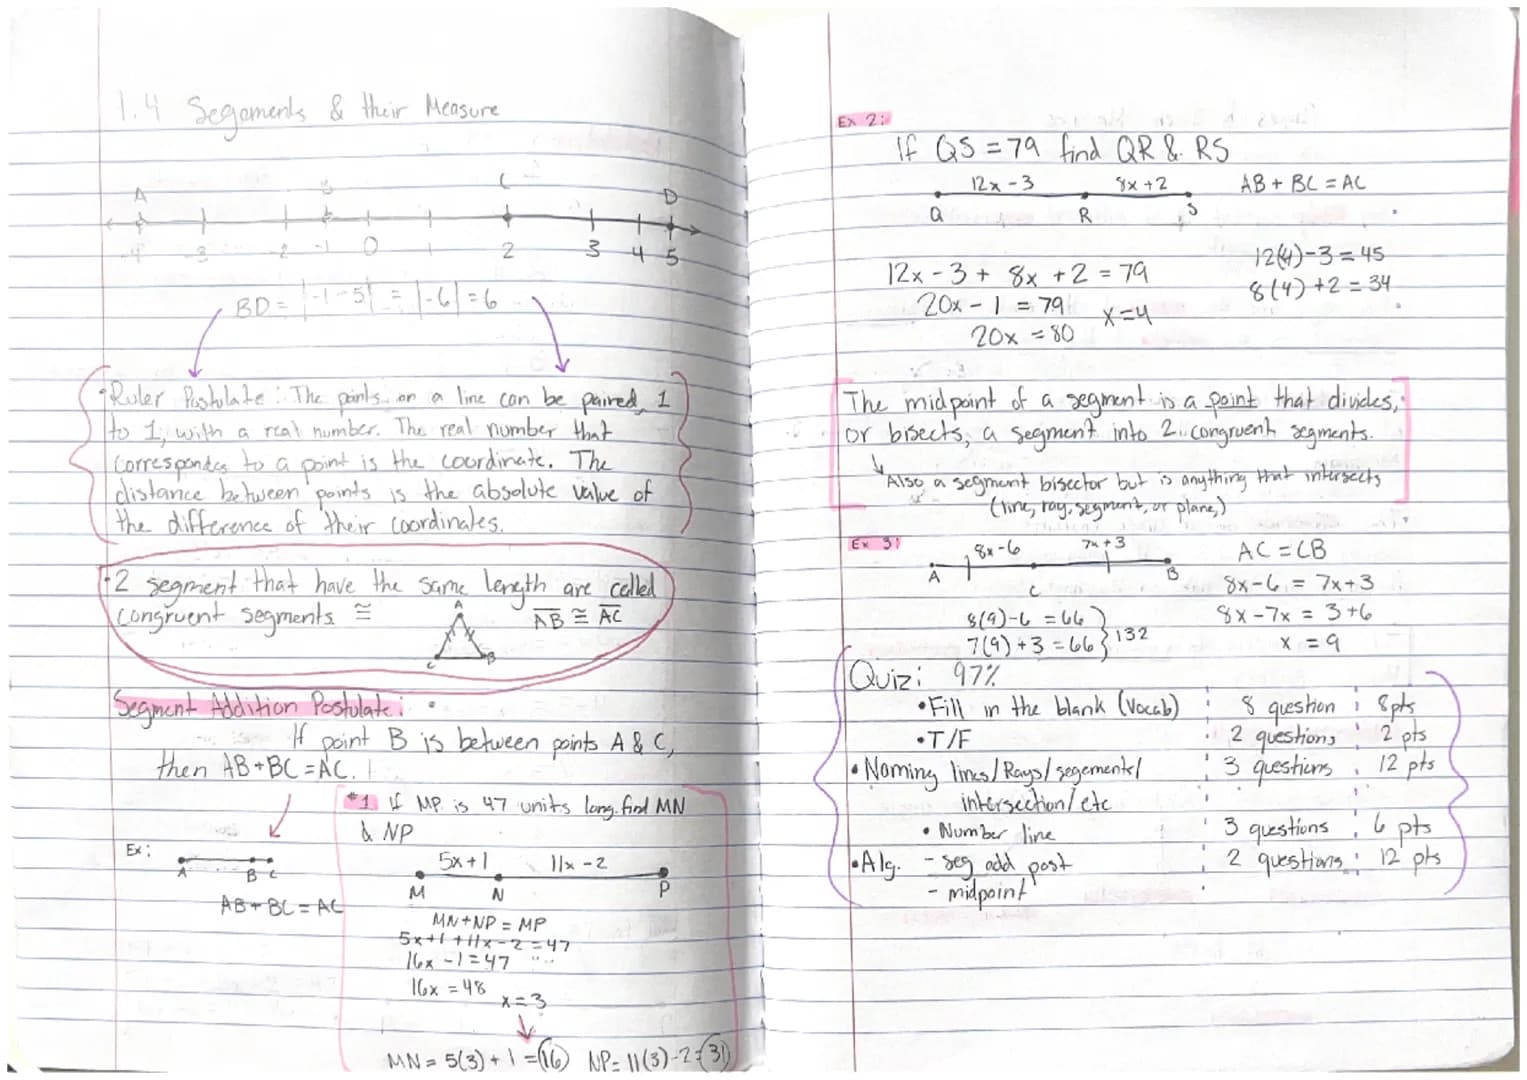 1.4 Segoments & their Measure
A B C D
-4 -3 -2 -1 0 1 2 3 4 5
BD = |-1-5| = |-6| = 6
• Ruler Postulate: The points on a line can be paired, 1
to 1, with a real number. The real number that
correspondes to a point is the coordinate. The
distance between points is the absolute value of
the difference of their coordinates.
• 2 segment that have the same length are called
congruent segments ≅
AB ≅ AC
A
C B
Segment Addition Postulate:
If point B is between points A & C,
then AB+BC=AC.
Ex:
A B C
AB+BC=AC
#1 If MP is 47 units long. find MN
& NP
5x+1 11x-2
M N P
MN+NP=MP
5x+1+11x-2=47
16x-1=47
16x=48
x=3
MN=5(3)+1=16 NP=11(3)-2=31
Ex 2:
If QS=79 find QR & RS
12x-3 8x+2
Q R S
AB+BC=AC
12x-3+8x+2=79
20x-1=79
20x=80
x=4
12(4)-3=45
8(4)+2=34
The midpoint of a segment is a point that divides,
or bisects, a segment into 2 congruent segments.
Also a segment bisector but is anything that intersects
(line, ray, segment, or plane,)
Ex 3:
8x-6 7x+3
A C B
8(9)-6=66
7(9)+3=66 } 132
AC=CB
8x-6=7x+3
8x-7x=3+6
x=9
Quiz: 97%
• Fill in the blank (Vocab) 8 question 8pts
• T/F 2 questions 2 pts
• Naming lines/Rays/segements/ 3 questions 12 pts
intersection/etc
• Number line 3 questions 6 pts
• Alg. - seg add post 2 questions 12 pts
- midpoint